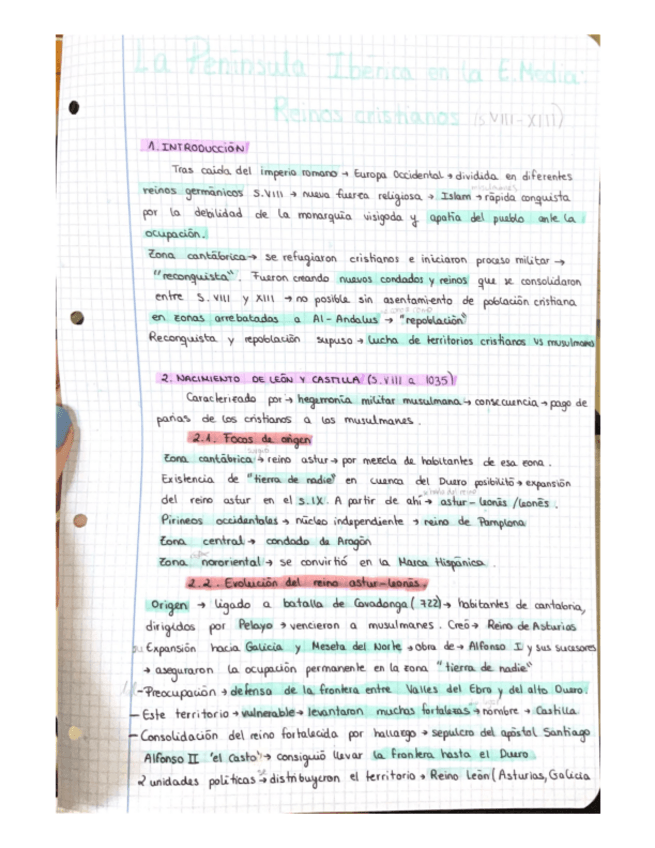 La Península Ibérica en la E.Media:
Reinos cristianos (s.VIII-XIII)
1. INTRODUCCIÓN
Tras caída del imperio romano → Europa Occidental → dividida en diferentes
reinos germánicos S.VIII → nueva fuerza religiosa → Islam → rápida conquista
por la debilidad de la monarquía visigoda y apatía del pueblo ante la
ocupación.
Zona cantábrica → se refugiaron cristianos e iniciaron proceso militar →
"reconquista". Fueron creando nuevos condados y reinos que se consolidaron
entre S. VIII y XIII → no posible sin asentamiento de población cristiana
en zonas arrebatadas a Al-Andalus → "repoblación"
Reconquista y repoblación supuso → lucha de territorios cristianos VS musulmano
2. NACIMIENTO DE LEÓN Y CASTILLA (S.VIII a 1035)
Caracterizado por → hegemonía militar musulmana → consecuencia → pago de
parias de los cristianos a los musulmanes.
2.1. Focos de origen
Zona cantábrica → reino astur → por mezcla de habitantes de esa zona.
Existencia de "tierra de nadie" en cuenca del Duero posibilitó → expansión
del reino astur en el S.IX. A partir de ahí → astur-leonés /leonés.
Pirineos occidentales → núcleo independiente → reino de Pamplona
Zona central → condado de Aragón
Zona nororiental → se convirtió en la Marca Hispánica.
2.2. Evolución del reino astur-leonés.
Origen → ligado a batalla de Covadonga (722) → habitantes de cantabria,
dirigidos por Pelayo → vencieron a musulmanes. Creó → Reino de Asturias
su Expansión hacia Galicia y Meseta del Norte → obra de → Alfonso I y sus sucesores
→ aseguraron la ocupación permanente en la zona "tierra de nadie"
-Preocupación → defensa de la frontera entre Valles del Ebro y del alto Duero.
- Este territorio → vulnerable → levantaron muchas fortalezas → nombre → Castilla
- Consolidación del reino fortalecida por hallazgo → sepulcro del apóstol Santiago
Alfonso II 'el Casto' → consiguió llevar la frontera hasta el Duero
2 unidades políticas → distribuyeron el territorio → Reino León (Asturias, Galicia